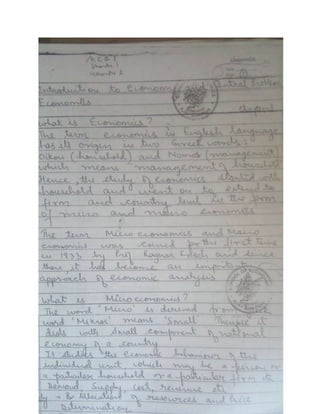 Introduction to Econom Central Problem
Economics
chapter 1
What is Economics?
The term economics in English language
has its origin in two Greek words:
Oikou (household) and Nomos (management)
which means management of household
Hence, the study of economics started with
household and went on to extend to
firm and country level in the form
of micro and macro economics
The term Micro economics and Macro
economics was coined for the first time
in 1933 by Prof Ragnar Frisch and since
then it has become an important
approach of economic analysis
What is Micro economics?
The word 'Micro' is derived from
word 'Mikros' means 'Small'. Therefore it
deals with small component of national
economy of a country
It studies the economic behaviour of the
individual unit which may be a person or
a particular household or a particular firm
Demand Supply cost, revenue etc
Allocation of resources and price
Determination